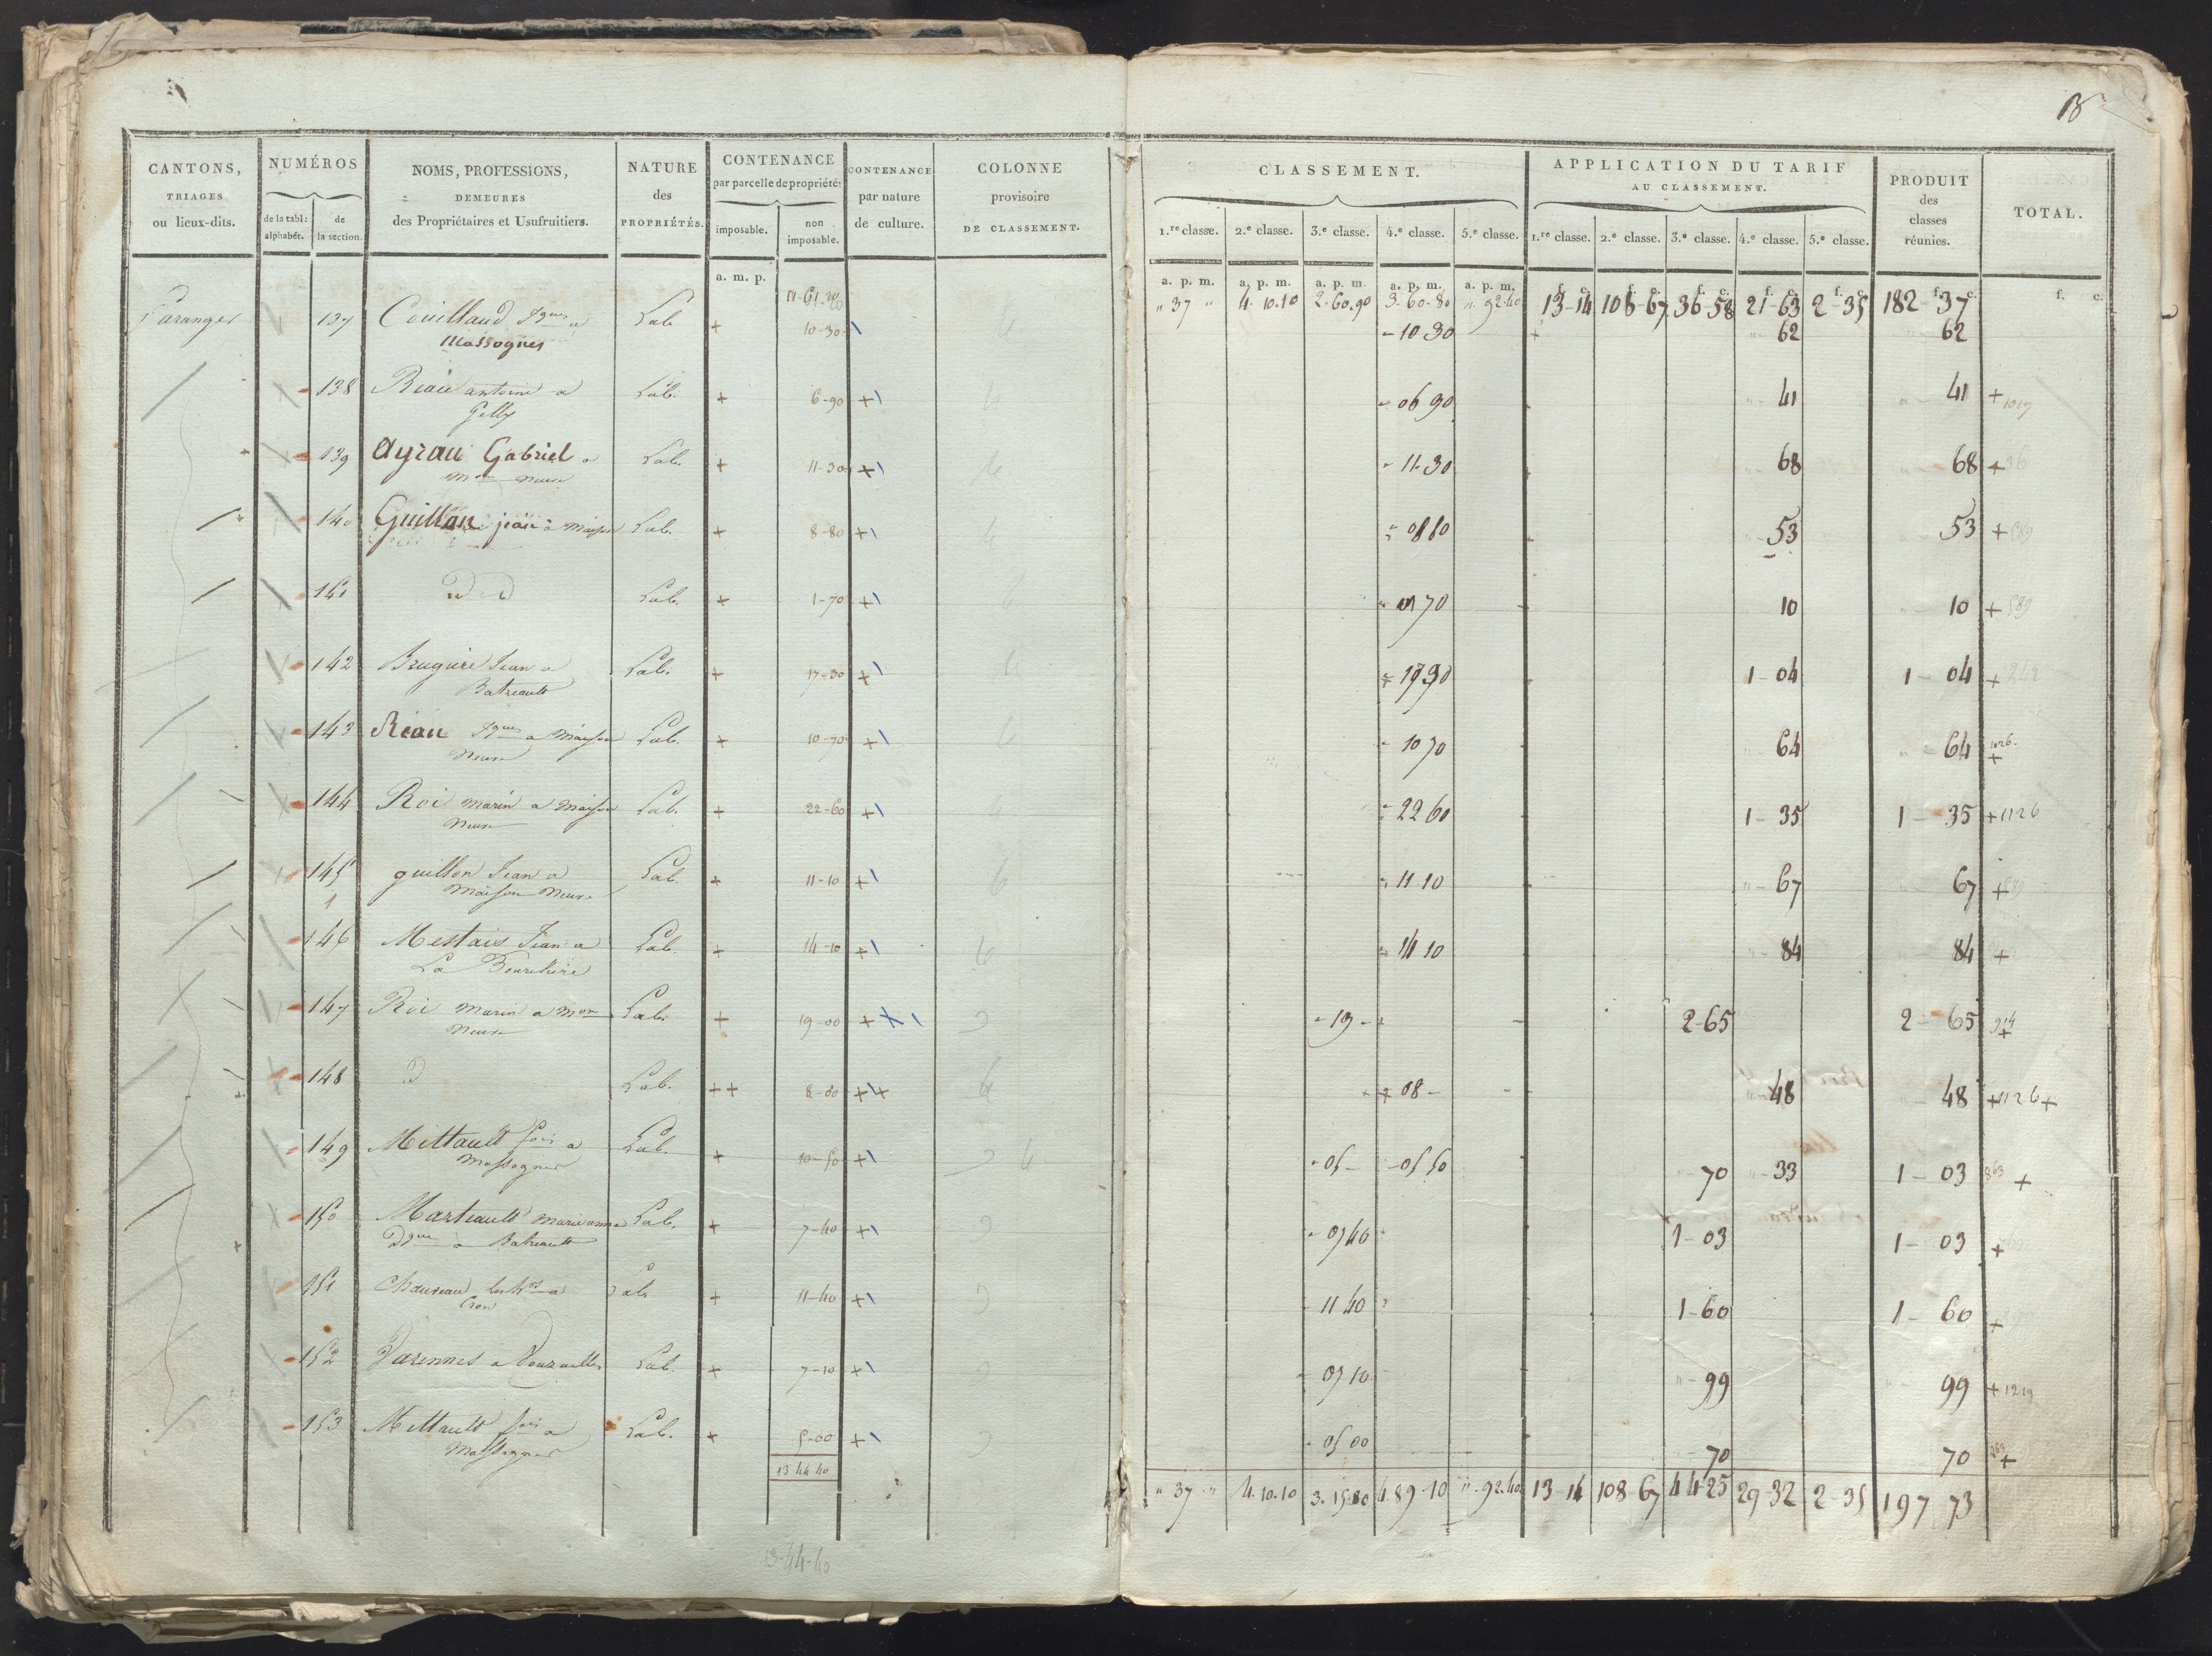 13
CANTONS, TRIAGES ou lieux-dits.
NUMÉROS
de la tabl: alphabét.
de la section.
NOMS, PROFESSIONS, DEMEURES des Propriétaires et Usufruitiers.
NATURE des PROPRIÉTÉS.
CONTENANCE par parcelle de propriétés
imposable.
non imposable.
CONTENANCE par nature de culture.
COLONNE provisoire DE CLASSEMENT.
CLASSEMENT.
1.re classe. 2.e classe. 3.e classe. 4.e classe. 5.e classe.
APPLICATION DU TARIF AU CLASSEMENT.
1.re classe. 2.e classe. 3.e classe. 4.e classe. 5.e classe.
PRODUIT des classes réunies.
TOTAL.
a. m. p.
a. p. m. a. p. m. a. p. m. a. p. m. a. p. m. f. c. f. c. f. c. f. c. f. c. f. c. f. c.
" 37 " 4. 10. 10 2. 60. 90 3. 60. 80 " 92. 40 13-14 108-67 36-58 21-63 2-35 182-37
137 Couillaud Jques a Lab + 10-30 - 10 30 62 62
Massognes
138 Réau antoine a Lab. + 6-90 + - 06 90 41 41 +
Jelly
139 Ayrau Gabriel a Lab. + 11-30 + - 11-30 68 68 + 36
Mon neuve
140 Guillon jean a Maison Lab. + 8-80 + - 08 80 53 53 + 589
141 D D Lab. + 1-70 + 01 70 10 10 + 589
142 Brugière Jean a Lab. + 17-30 + 1-04 1-04 +
Batreault
143 Réau Jques a Maison Lab. + 10-70 + - 10 70 64 64 1026. +
Neuve
144 Roi marin a Maison Lab. + 22-60 + - 22 60 1-35 1-35 +1126
Neuve
145 guillon Jean a Lab. + 11-10 + 11 10 67 67 +
Maison Neuve
146 Mestais Jean a Lab. + 14-10 + 14 10 84 84 +
La
147 Roi marin a Mon Lab. + 19-00 + X - 19 - 2-65 2-65 +
Neuve
148 D Lab. ++ 8-00 ++ + 08 - 48 48 +1126+
149 Mittault fois a Lab. + 10-50 + - 05 - - 05 50 70 33 1-03 863 +
Massognes
150 Marteault marie anne Lab. + 7-40 + - 07 40 1-03 1-03 +
a Batreault
151 Chauveau a Lab + 11-40 + 11 40 1-60 1-60 +
Cron
152 Varennes a Vouzailles Lab. + 7-10 + 07 10 99 99 + 1219
153 Mittault fois a Lab. + 5-00 + - 05 00 70 70 863 +
Massognes
13 44 40
" 37 " 4. 10. 10 3. 15. 80 4. 89. 10 " 92. 40 13-14 108-67 44-25 29-32 2-35 197 73
13-44-40